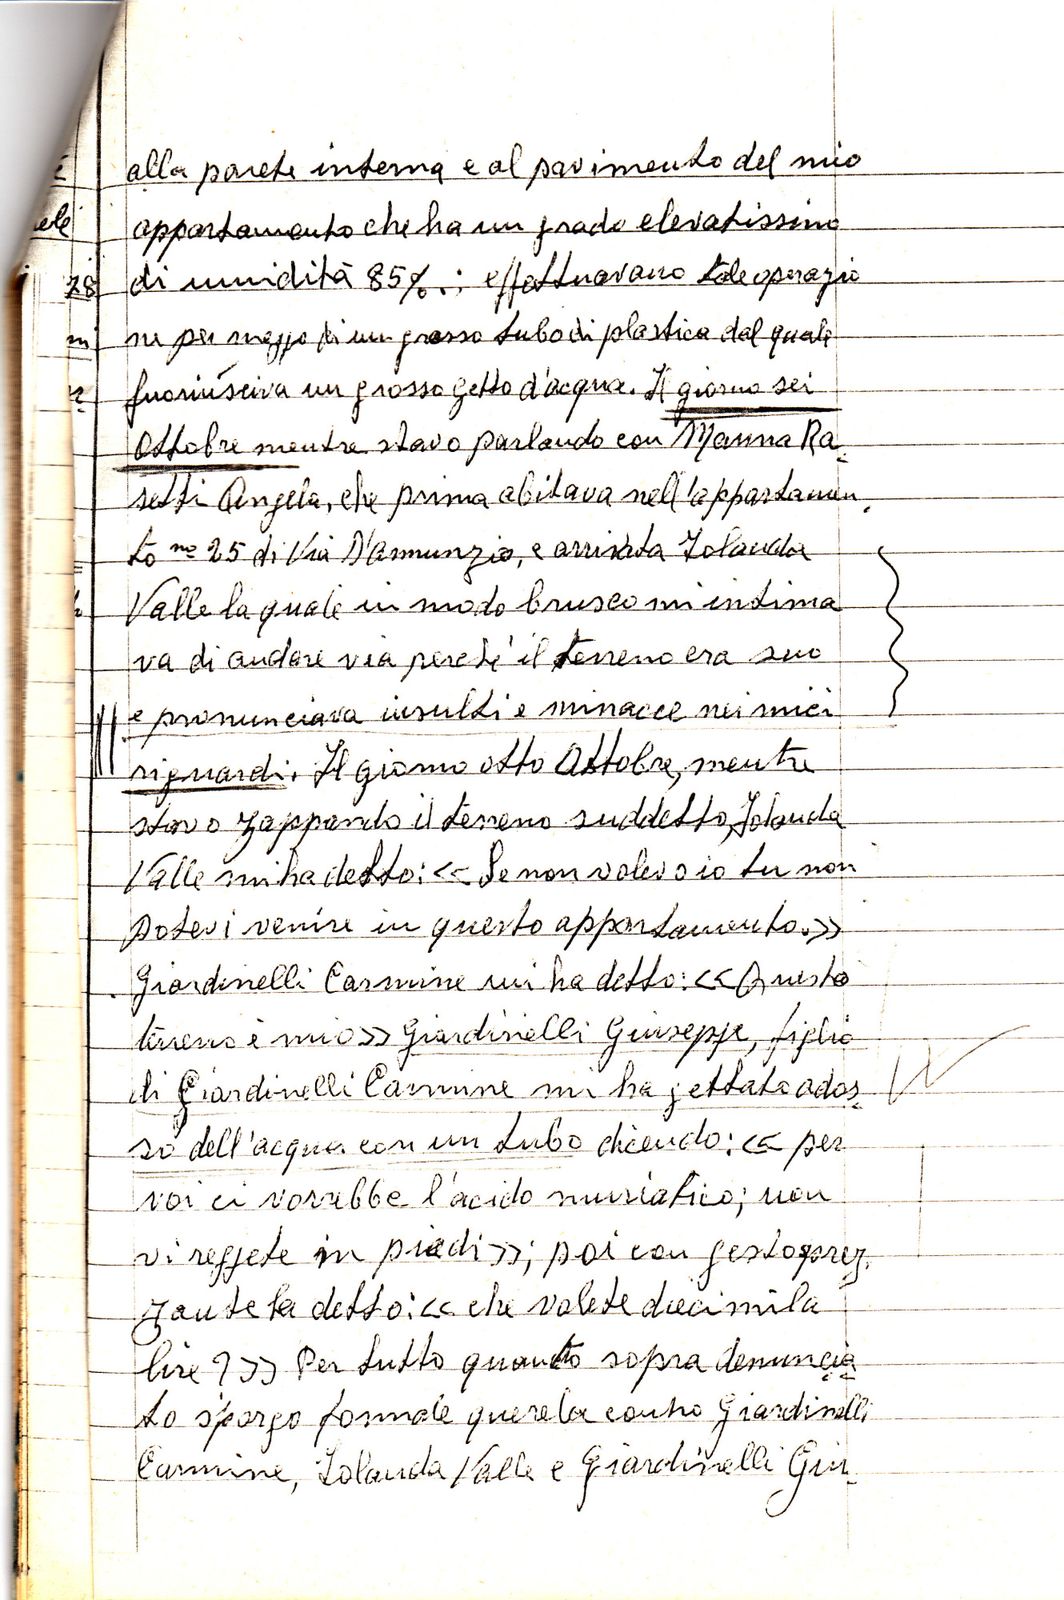 alla parete interna e al pavimento del mio
appartamento che ha un grado elevatissimo
di umidità 85%.; effettuavano tale operazio
78
ne per mezzo di un grosso tubo di plastica dal quale
fuoriusciva un grosso getto d'acqua. Il giorno sei
Ottobre mentre stavo parlando con Manna Ra-
setti Angela, che prima abitava nell'appartamen-
to nº 25 di Via D'Annunzio, e arrivata Iolanda
Valle la quale in modo brusco mi intima
va di andare via perchè il terreno era suo
e pronunciava insulti e minacce nei miei
riguardi. Il giorno otto Ottobre, mentre
stavo zappando il terreno suddetto, Iolanda
Valle mi ha detto: << Se non volevo io tu non
potevi venire in questo appartamento.>>
Giardinelli Carmine mi ha detto: << Questo
terreno è mio>> Giardinelli Giuseppe, figlio
di Giardinelli Carmine mi ha gettato ados-
so dell'acqua con un tubo dicendo: << per
voi ci vorrebbe l'acido muriatico; non
vi reggete in piedi>>; poi con gesto sprez-
zante ha detto: << che volete diecimila
lire?>> Per tutto quanto sopra denuncia
to sporgo formale querela contro Giardinelli
Carmine, Iolanda Valle e Giardinelli Giu-